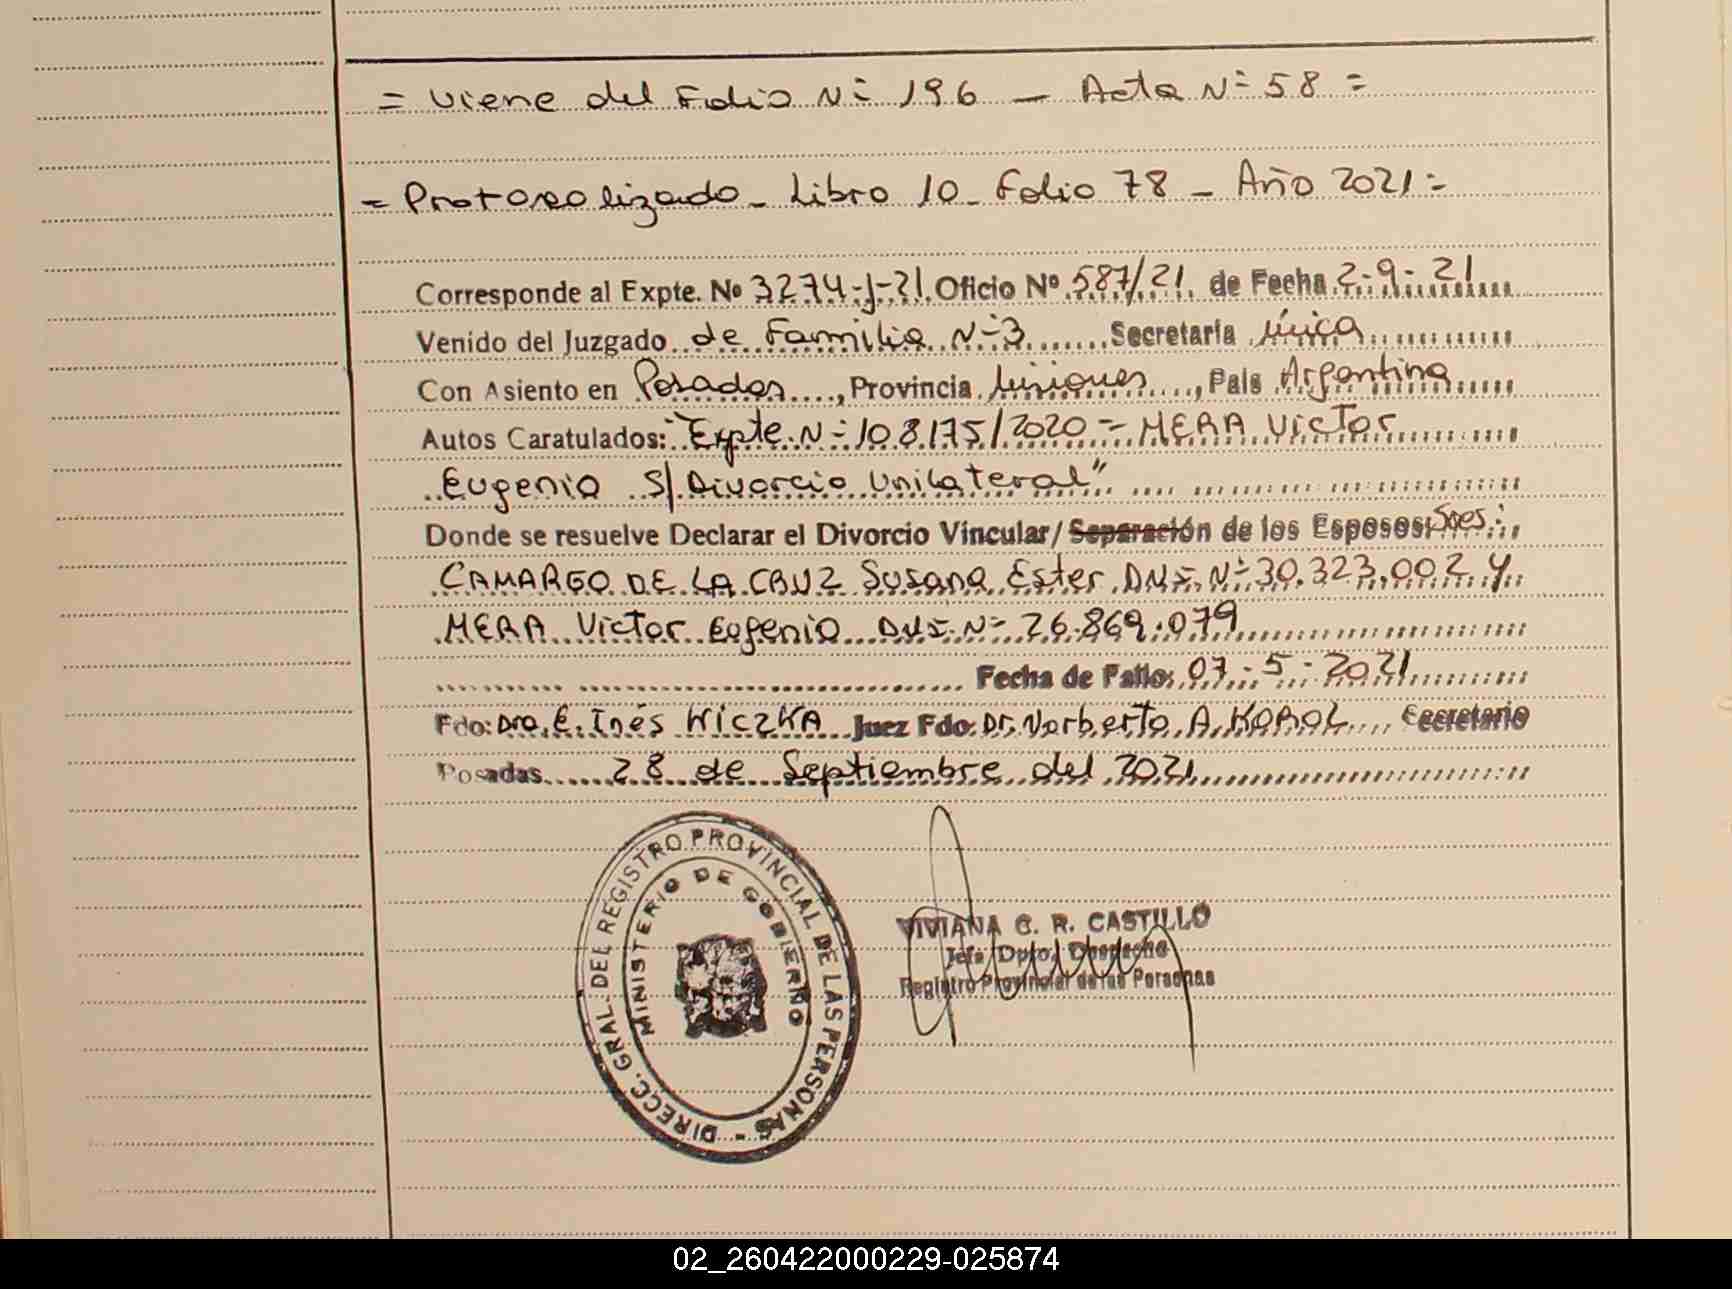 = Viene del Folio Nº 196 — Acta Nº 58 =
= Protocolizado - Libro 10 - Folio 78 - Año 2021 =
Corresponde al Expte. Nº 3274-J-21 Oficio Nº 587/21 de Fecha 2-9-21
Venido del Juzgado de Familia Nº 3 Secretaría única
Con Asiento en Posadas, Provincia Misiones, País Argentina
Autos Caratulados: "Expte. Nº 108.175/2020 - MERA Victor
Eugenio S/Divorcio Unilateral"
Donde se resuelve Declarar el Divorcio Vincular/Separación de los Esposos: Sres:
CAMARGO DE LA CRUZ Susana Ester DNI. Nº 30.323.002 y
MERA Victor Eugenio DNI. Nº 26.869.079
Fecha de Fallo: 07-5-2021
Fdo: Dra. E. Inés WICZKA Juez Fdo: Dr. Norberto A. KOROL Secretario
Posadas 28 de Septiembre del 2021
DIRECC. GRAL. DEL REGISTRO PROVINCIAL DE LAS PERSONAS -
MINISTERIO DE GOBIERNO
VIVIANA G. R. CASTILLO
Jefa Dpto. Despacho
Registro Provincial de las Personas
02_260422000229-025874